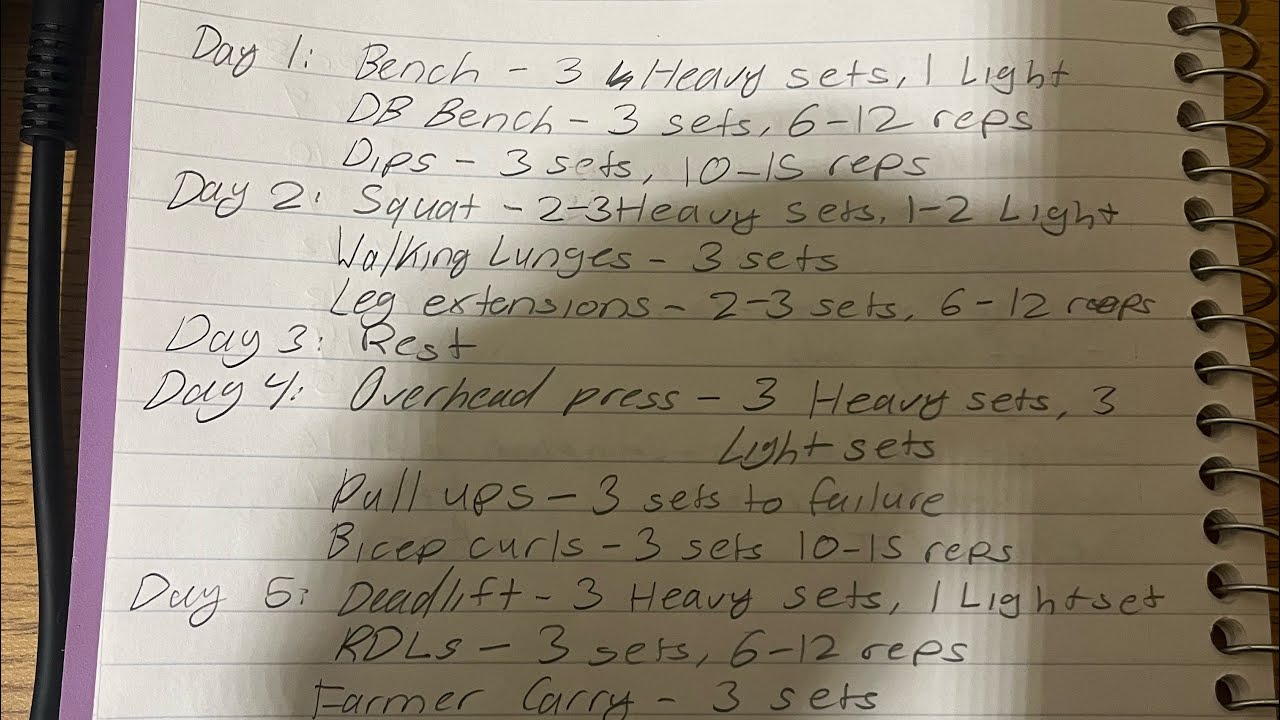 Day 1: Bench - 3 Heavy sets, 1 Light
DB Bench - 3 sets, 6-12 reps
Dips - 3 sets, 10-15 reps
Day 2: Squat - 2-3 Heavy sets, 1-2 Light
Walking Lunges - 3 sets
Leg extensions - 2-3 sets, 6-12 reps
Day 3: Rest
Day 4: Overhead press - 3 Heavy sets, 3
Light sets
Pull ups - 3 sets to failure
Bicep curls - 3 sets 10-15 reps
Day 5: Deadlift - 3 Heavy sets, 1 Light set
RDLs - 3 sets, 6-12 reps
Farmer Carry - 3 sets